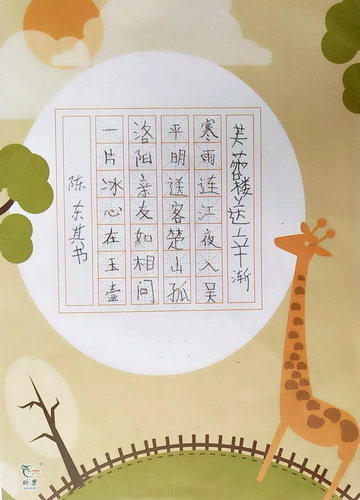 芙蓉楼送辛渐
寒雨连江夜入吴
平明送客楚山孤
洛阳亲友如相问
一片冰心在玉壶
陈东其书